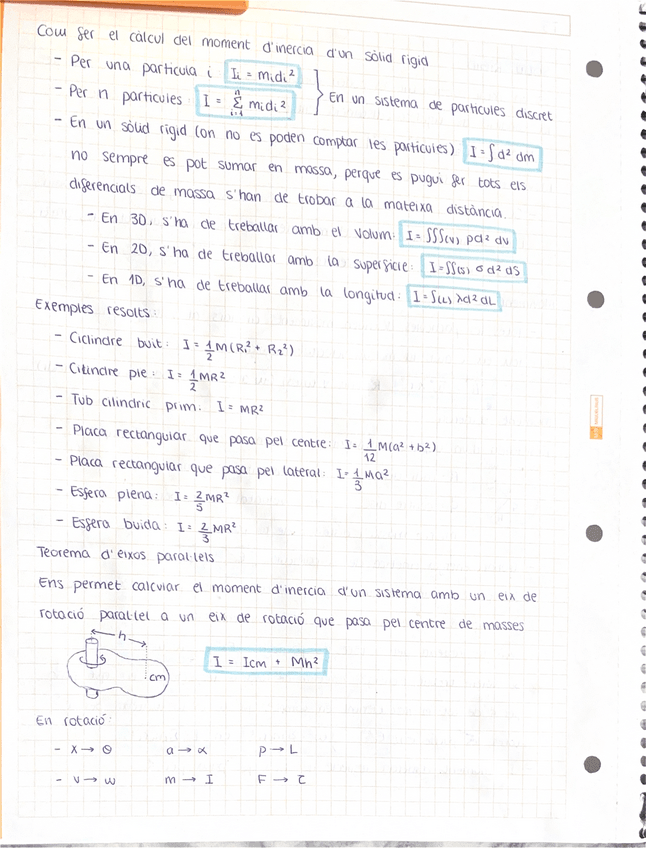 Com fer el càlcul del moment d'inercia d'un sòlid rigid
- Per una particula i Ii = midi²
- Per n particules I = Σ midi² } En un sistema de particules discret
n
i=1
- En un sòlid rigid (on no es poden comptar les particules) I = ∫d² dm
no sempre es pot sumar en massa, perque es pugui fer tots els
diferencials de massa s'han de trobar a la mateixa distància.
- En 3D, s'ha de treballar amb el volum: I = ∫∫∫(V) ρd² dV
- En 2D, s'ha de treballar amb la superficie: I = ∫∫(S) σ d² dS
- En 1D, s'ha de treballar amb la longitud: I = ∫(L) λd² dL
Exemples resolts:
- Ciclindre buit: I = 1/2 M(R₁² + R₂²)
- Cilindre ple: I = 1/2 MR²
- Tub cilindric prim: I = MR²
- Placa rectangular que pasa pel centre: I = 1/12 M(a² + b²)
- Placa rectangular que pasa pel lateral: I = 1/3 Ma²
- Esfera plena: I = 2/5 MR²
- Esfera buida: I = 2/3 MR²
Teorema d'eixos paral·lels
Ens permet calcular el moment d'inercia d'un sistema amb un eix de
rotació paral·lel a un eix de rotació que pasa pel centre de masses
h
cm
I = Icm + Mh²
En rotació:
- x → θ a → α p → L
- v → ω m → I F → τ